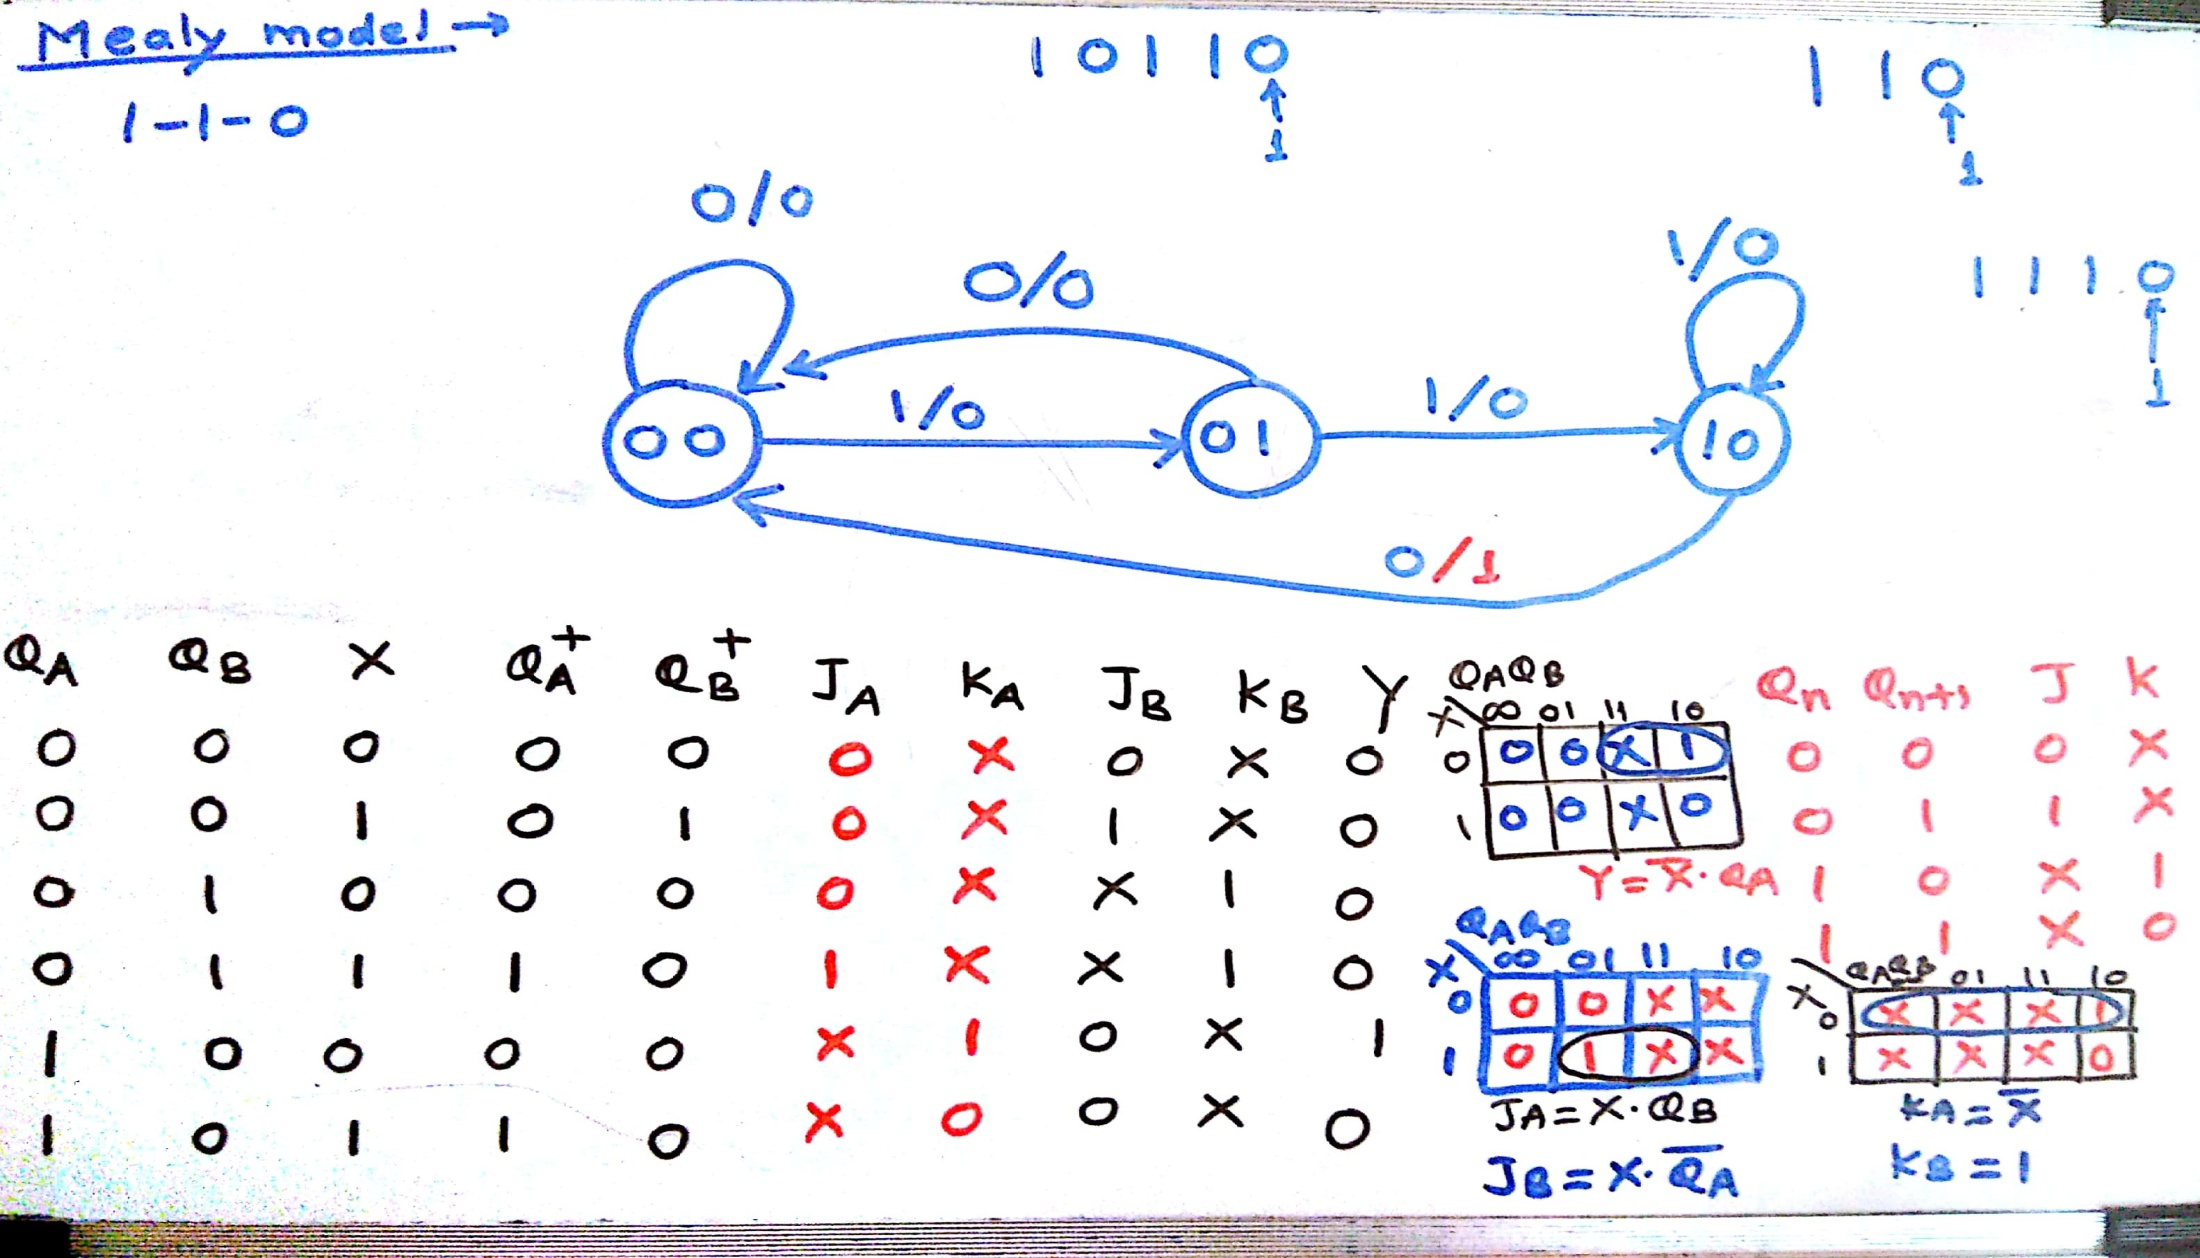 Mealy model →
1-1-0
1 0 1 1 0
↑
1
1 1 0
↑
1
1 1 1 0
↑
1
0/0
0/0
1/0
1/0
1/0
00
01
10
0/1
QA QB X QA+ QB+ JA KA JB KB Y
0 0 0 0 0 0 X 0 X 0
0 0 1 0 1 0 X 1 X 0
0 1 0 0 0 0 X X 1 0
0 1 1 1 0 1 X X 1 0
1 0 0 0 0 X 1 0 X 1
1 0 1 1 0 X 0 0 X 0
QAQB
X 00 01 11 10
0 0 0 X 1
1 0 0 X 0
Y = X̅·QA
Qn Qn+1 J K
0 0 0 X
0 1 1 X
1 0 X 1
1 1 X 0
QAQB
X 00 01 11 10
0 0 0 X X
1 0 1 X X
JA = X·QB
JB = X·Q̅A
QAQB 01 11 10
X
0 X X X 1
1 X X X 0
KA = X̅
KB = 1